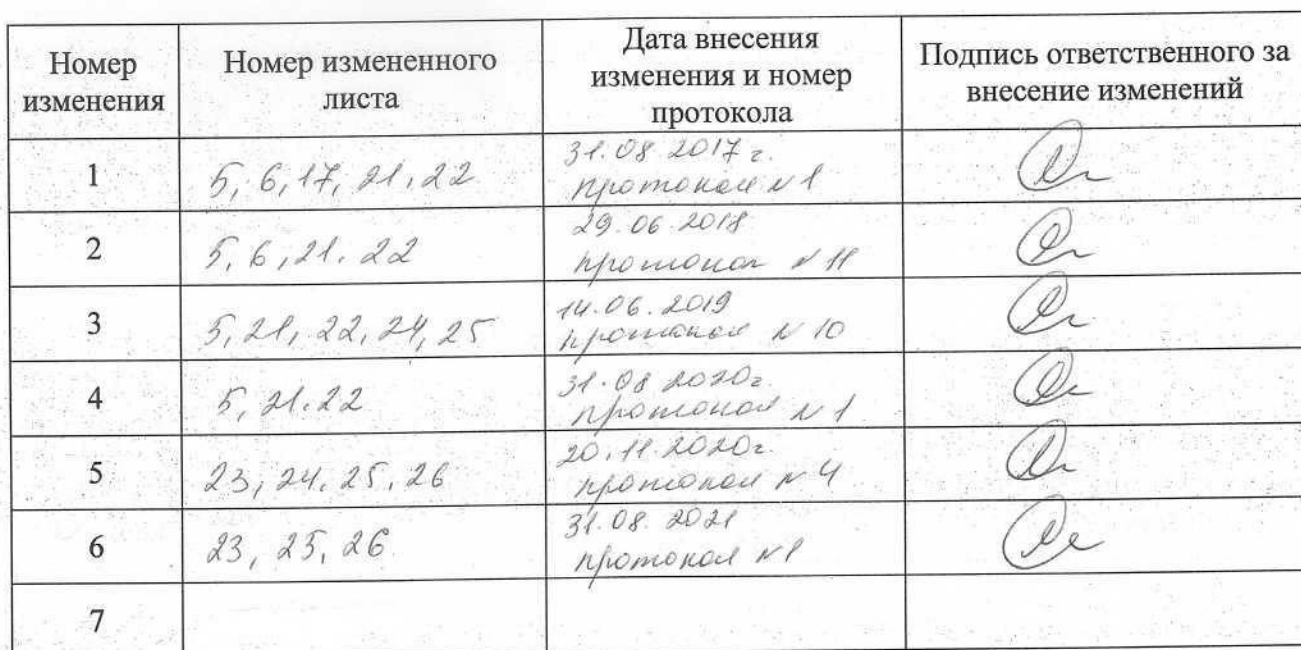 Номер изменения
Номер измененного листа
Дата внесения изменения и номер протокола
Подпись ответственного за внесение изменений
1
5, 6, 17, 21, 22
31.08.2017 г.
протокол N 1
2
5, 6, 21, 22
29.06.2018
протокол N 11
3
5, 21, 22, 24, 25
14.06.2019
протокол N 10
4
5, 21, 22
31.08 2020г.
протокол N 1
5
23, 24, 25, 26
20.11.2020г.
протокол N 4
6
23, 25, 26
31.08.2021
протокол N 1
7